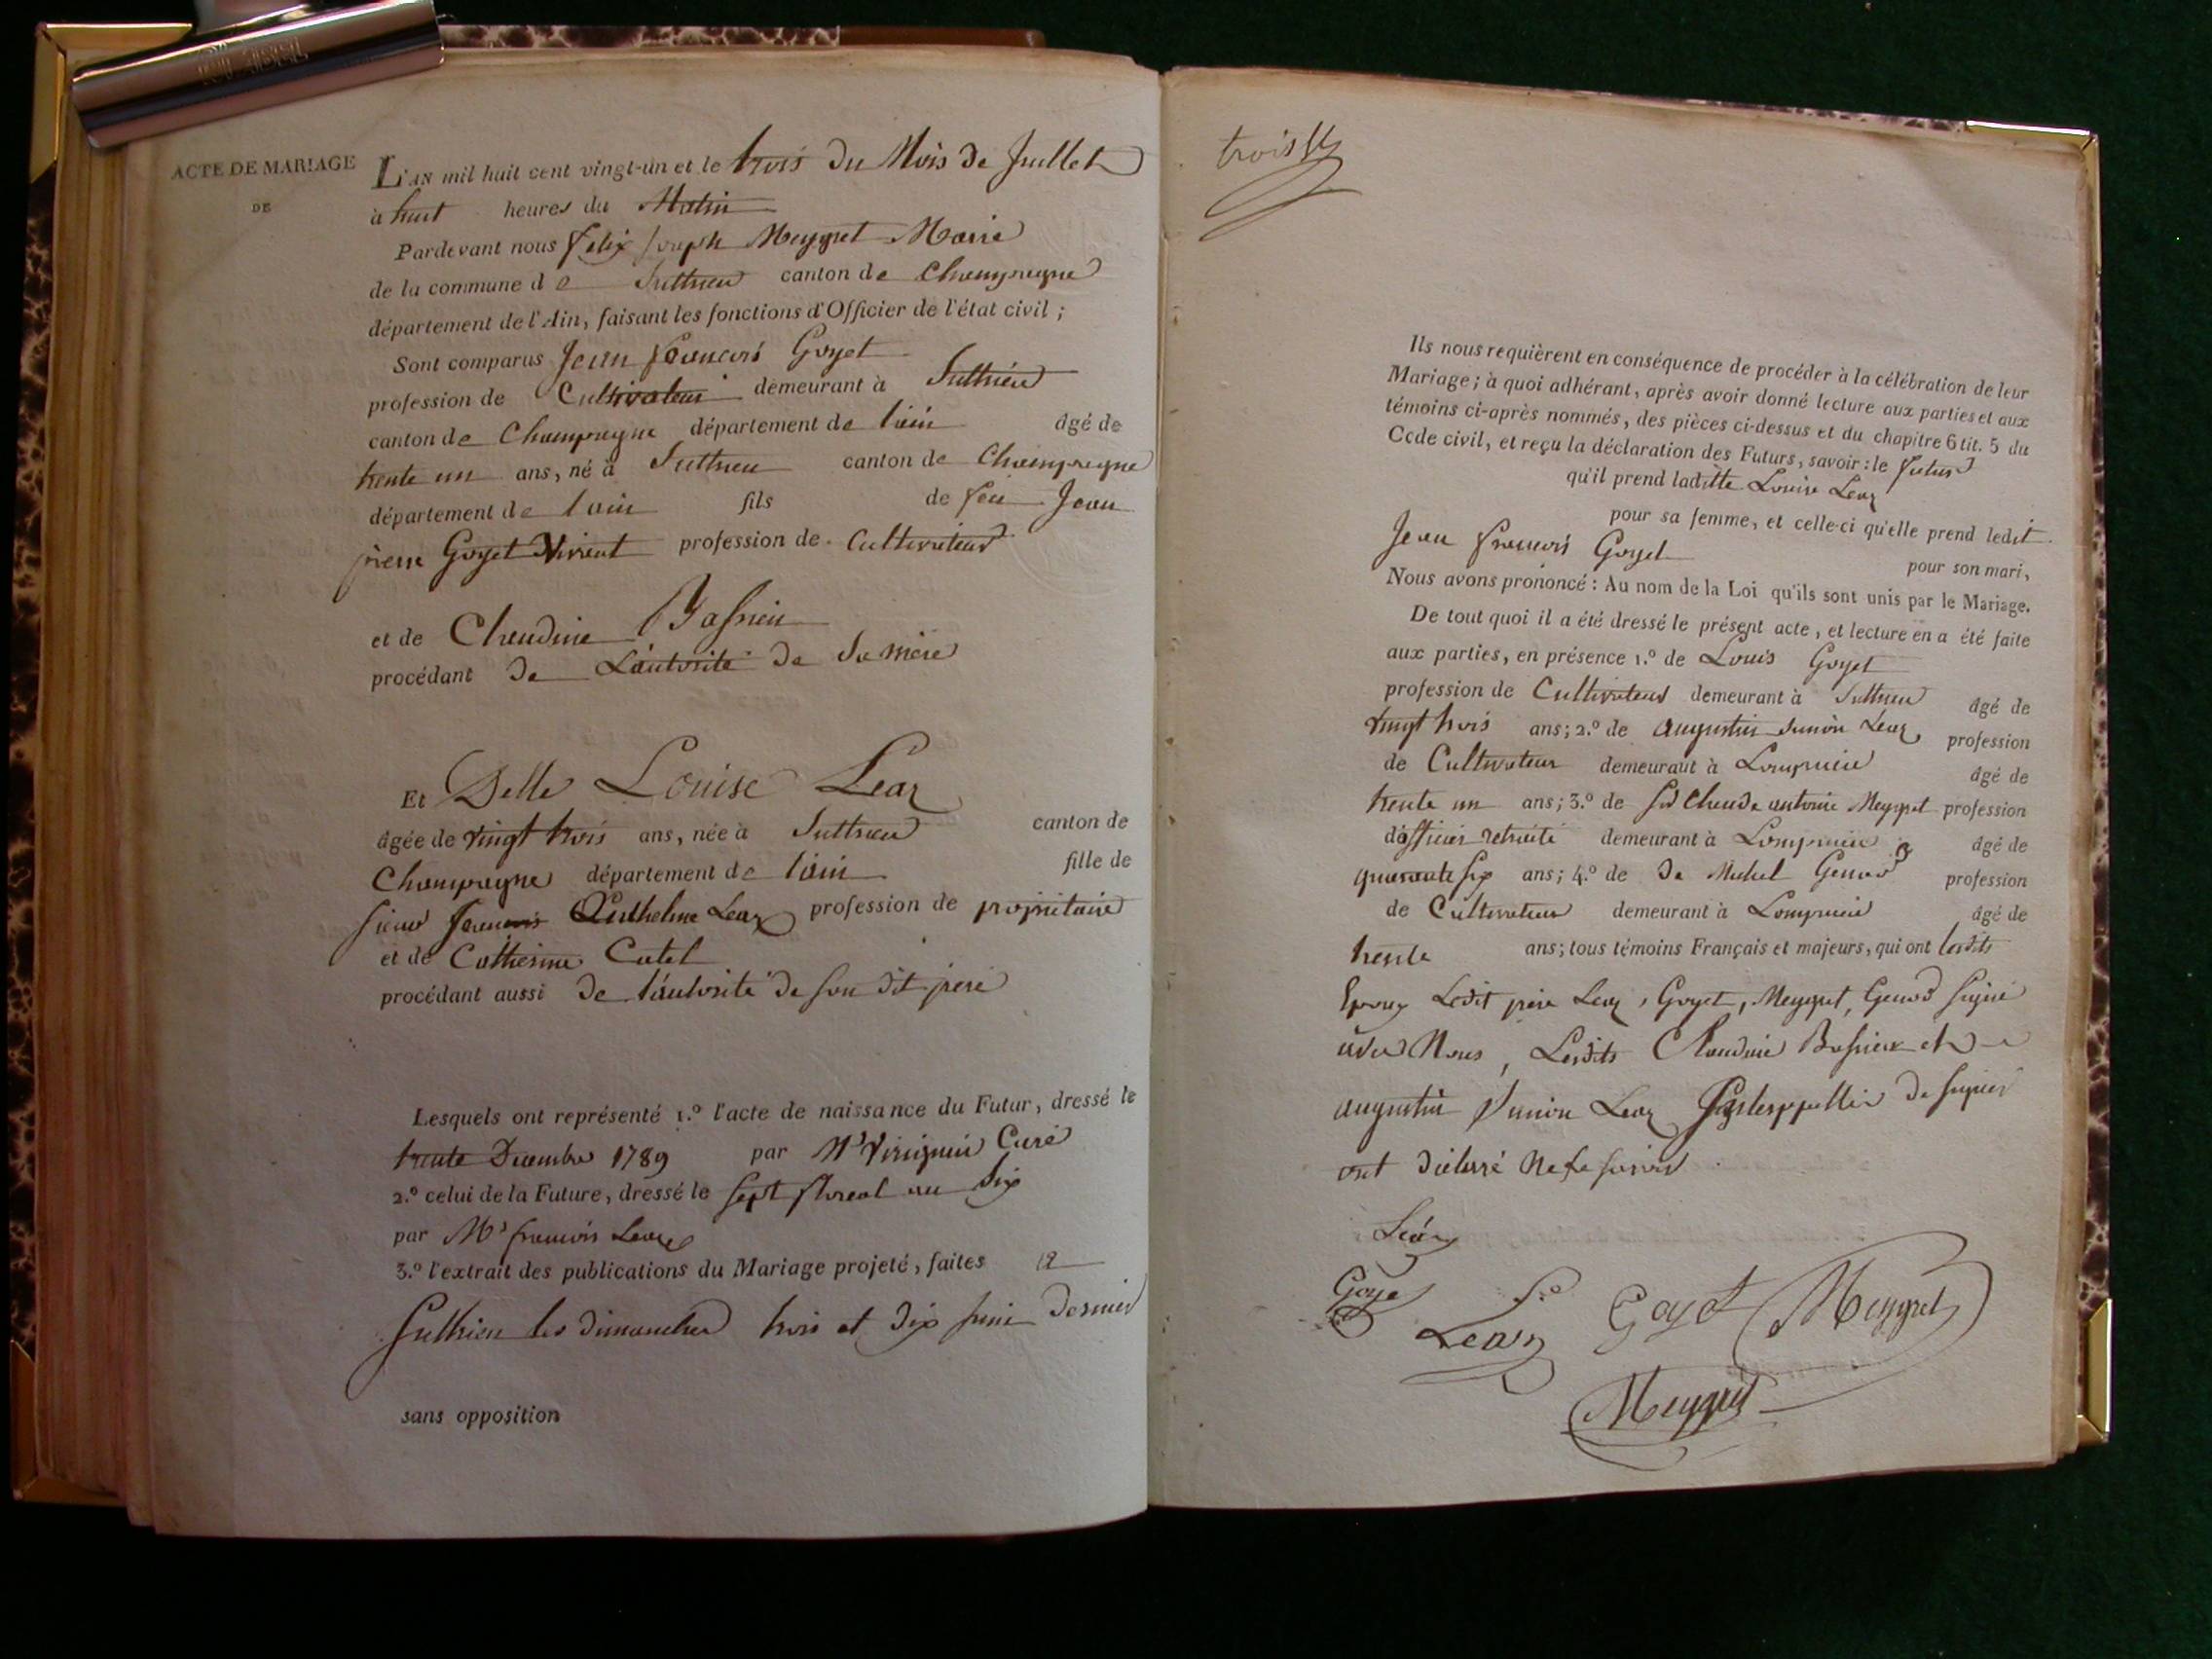 ACTE DE MARIAGE
DE
L'AN mil huit cent vingt-un et le trois du Mois de Juillet
à huit heures du Matin
Pardevant nous felix Joseph Meygret Maire
de la commune de Suttrieu canton de Champagne
département de l'Ain, faisant les fonctions d'Officier de l'état civil ;
Sont comparus Jean francois Goyet
profession de Cultivateur demeurant à Suttrieu
canton de Champagne département de l'ain âgé de
trente un ans, né à Suttrieu canton de Champagne
département de l'ain fils de feu Jean
pierre Goyet vivant profession de Cultivateur
et de Claudine
procédant de L'autorité de Sa mere
Et Delle Louise Lear
âgée de vingt trois ans, née à Suttrieu canton de
Champagne département de l'ain fille de
sieur francois Anthelme Lear profession de propriétaire
et de Catherine Catel
procédant aussi de l'autorité de son dit pere
Lesquels ont représenté 1.º l'acte de naissance du Futur, dressé le
trente Decembre 1789 par Mr Curé
2.º celui de la Future, dressé le sept floreal an Six
par Mr francois Lear
3.º l'extrait des publications du Mariage projeté, faites a
Suttrieu les dimanches trois et dix juin Dernier
sans opposition
trois
Ils nous requièrent en conséquence de procéder à la célébration de leur
Mariage ; à quoi adhérant, après avoir donné lecture aux parties et aux
témoins ci-après nommés, des pièces ci-dessus et du chapitre 6 tit. 5 du
Code civil, et reçu la déclaration des Futurs, savoir : le futur
qu'il prend ladite Louise Lear
pour sa femme, et celle-ci qu'elle prend ledit
Jean francois Goyet
pour son mari,
Nous avons prononcé : Au nom de la Loi qu'ils sont unis par le Mariage.
De tout quoi il a été dressé le présent acte, et lecture en a été faite
aux parties, en présence 1.º de Louis Goyet
profession de Cultivateur demeurant à Suttrieu âgé de
vingt trois ans ; 2.º de augustin Lear profession
de Cultivateur demeurant à Lompnieu âgé de
trente un ans ; 3.º de Sr Claude antoine Meygret profession
d'officier retraité demeurant à Lompnieu âgé de
quarante six ans ; 4.º de de Michel Genod profession
de Cultivateur demeurant à Lompnieu âgé de
trente ans ; tous témoins Français et majeurs, qui ont lesdits
Epoux Ledit pere Lear, Goyet, Meygret, Genod signé
avec Nous, Lesdits Claudine et
augustin Lear de signer
ont déclaré Ne le savoir
Lear
Goyet
Lear Goyet Meygret
Meygret